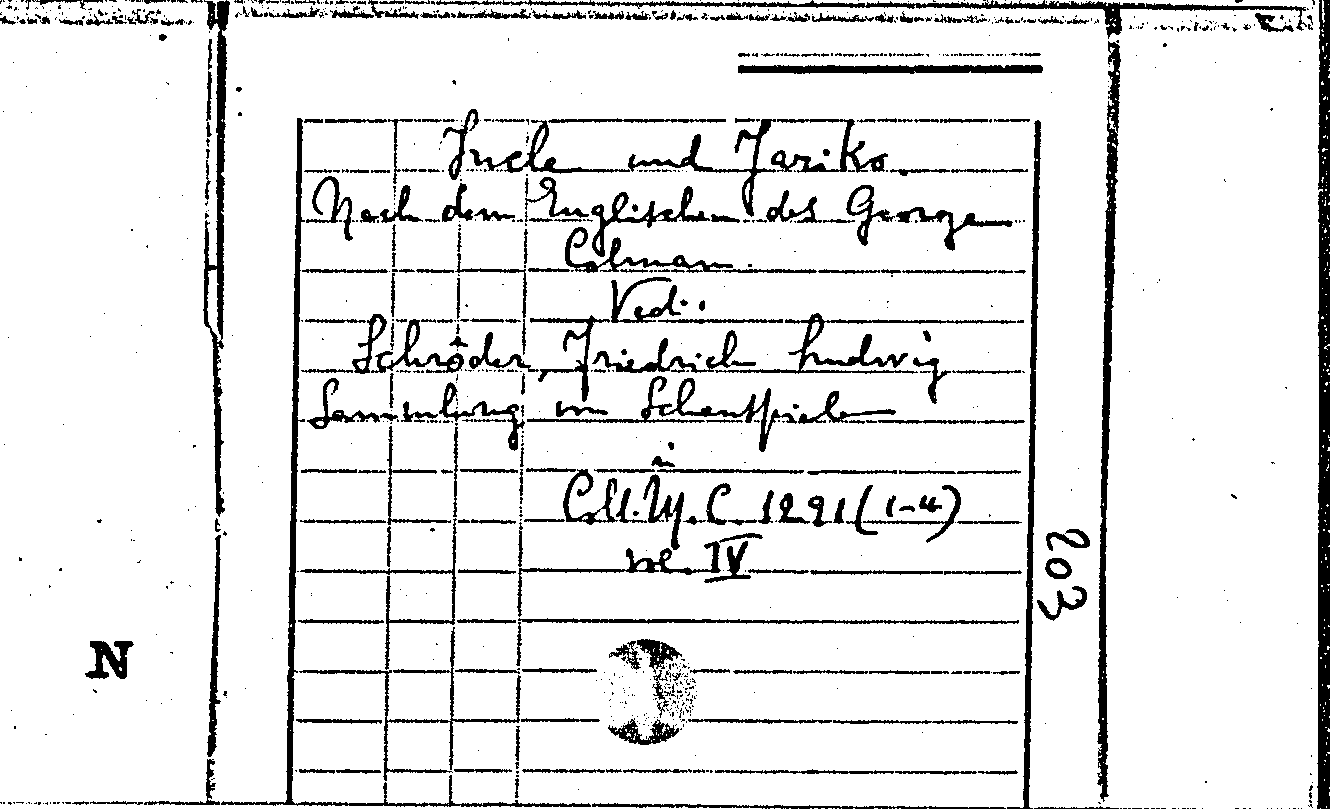 Incle und Jariko.
Nach dem Englischen des George
Colman.
Ved:.
Schröder, Friedrich Ludwig
Sammlung von Schauspielen
in
Coll. M. C. 1291 (1-4)
vol. IV
203
N